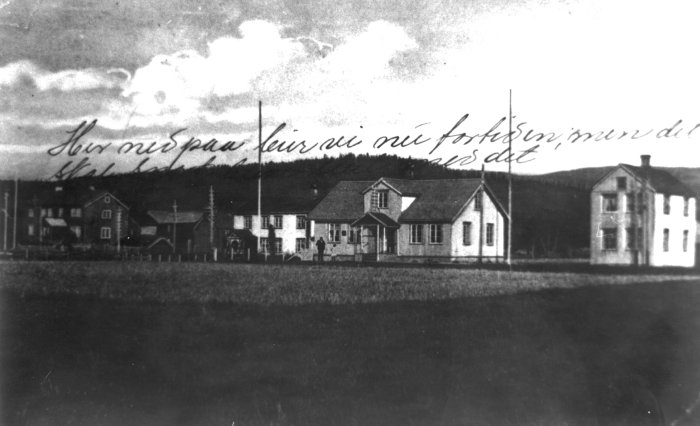 Her nedpaa leir vi nu fortiden, men det
skal med det